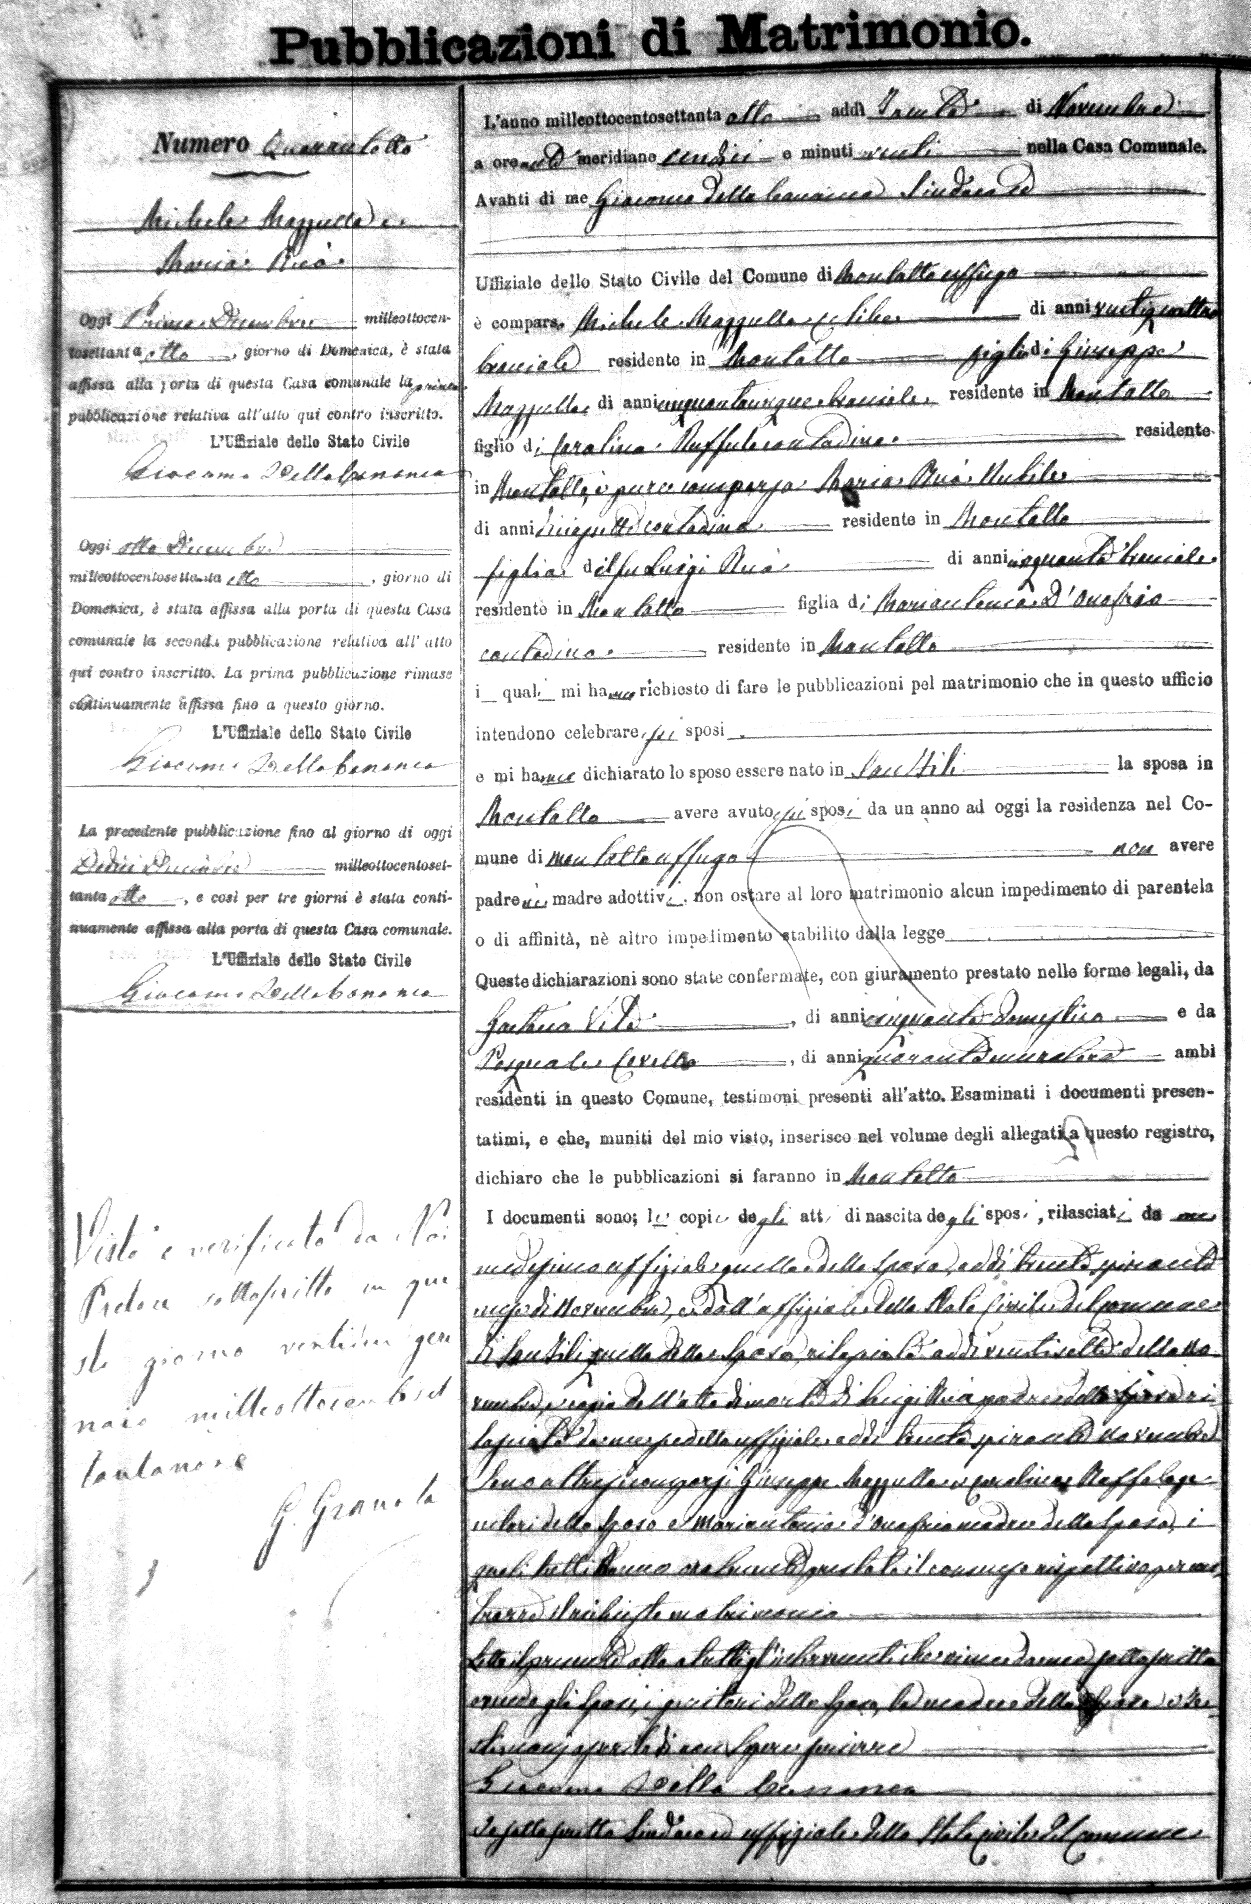 Pubblicazioni di Matrimonio.
Numero Quarantotto
Michele Mazzulla e
Maria Ruà
Oggi Primo Dicembre milleottocen-
tosettanta otto, giorno di Domenica, è stata
affissa alla porta di questa Casa comunale la prima
pubblicazione relativa all'atto qui contro inscritto.
L'Uffiziale dello Stato Civile
Giacomo Della Cananea
Oggi otto Dicembre
milleottocentosettanta otto, giorno di
Domenica, è stata affissa alla porta di questa Casa
comunale la seconda pubblicazione relativa all'atto
qui contro inscritto. La prima pubblicazione rimase
continuamente affissa fino a questo giorno.
L'Uffiziale dello Stato Civile
Giacomo Della Cananea
La precedente pubblicazione fino al giorno di oggi
Dodici Dicembre milleottocentoset-
tanta otto, e così per tre giorni è stata conti-
nuamente affissa alla porta di questa Casa comunale.
L'Uffiziale dello Stato Civile
Giacomo Della Cananea
Visto e verificato da Noi
Pretore sottoscritto in que
sto giorno gen
naio milleottocentoset
tantanove
G. Granata
L'anno milleottocentosettanta otto addì Trenta di Novembre
a ore anti meridiane undici e minuti venti nella Casa Comunale.
Avanti di me Giacomo Della Cananea Sindaco ed
Uffiziale dello Stato Civile del Comune di Montalto Uffugo
è comparso Michele Mazzulla celibe di anni ventiquattro
bracciale residente in Montalto figlio di Giuseppe
Mazzulla di anni cinquantacinque bracciale residente in Montalto
figlio di Carolina Ruffolo contadina residente
in Montalto, è pure comparsa Maria Ruà Nubile
di anni diciassette contadina residente in Montalto
figlia del fu Luigi Ruà di anni cinquanta bracciale
residente in Montalto figlia di Mariantonia D'Onofrio
contadina residente in Montalto
i quali mi hanno richiesto di fare le pubblicazioni pel matrimonio che in questo ufficio
intendono celebrare essi sposi
e mi hanno dichiarato lo sposo essere nato in San Fili la sposa in
Montalto avere avuto essi sposi da un anno ad oggi la residenza nel Co-
mune di Montalto Uffugo non avere
padre nè madre adottivi, non ostare al loro matrimonio alcun impedimento di parentela
o di affinità, nè altro impedimento stabilito dalla legge
Queste dichiarazioni sono state confermate, con giuramento prestato nelle forme legali, da
Gaetano Vita, di anni cinquanta domestico e da
Pasquale Covello, di anni quaranta muratore ambi
residenti in questo Comune, testimoni presenti all'atto. Esaminati i documenti presen-
tatimi, e che, muniti del mio visto, inserisco nel volume degli allegati a questo registro,
dichiaro che le pubblicazioni si faranno in Montalto
I documenti sono; le copie degli atti di nascita degli sposi, rilasciati da me
medesimo uffiziale quella della sposa, addì trenta spirante
mese di Novembre, e dall'uffiziale dello Stato Civile del Comune
di San Fili quella dello sposo, rilasciata addì ventisette detto No
vembre, e copia dell'atto di morte di Luigi Ruà padre della sposa ri
lasciata da me suddetto uffiziale addì trenta spirante Novembre
Sono altresì comparsi Giuseppe Mazzulla e Carolina Ruffolo ge
nitori dello sposo e Mariantonia d'Onofrio madre della sposa, i
quali tutti hanno oralmente prestato il consenso rispettivo per con
trarre il richiesto matrimonio
Letto il presente atto a tutti gl'intervenuti che viene da me sottoscritto
avendo gli sposi, i genitori dello sposo, la madre della sposa e te
stimoni asserito di non sapere scrivere
Giacomo Della Cananea
Sottoscritto Sindaco ed uffiziale dello Stato Civile del Comune